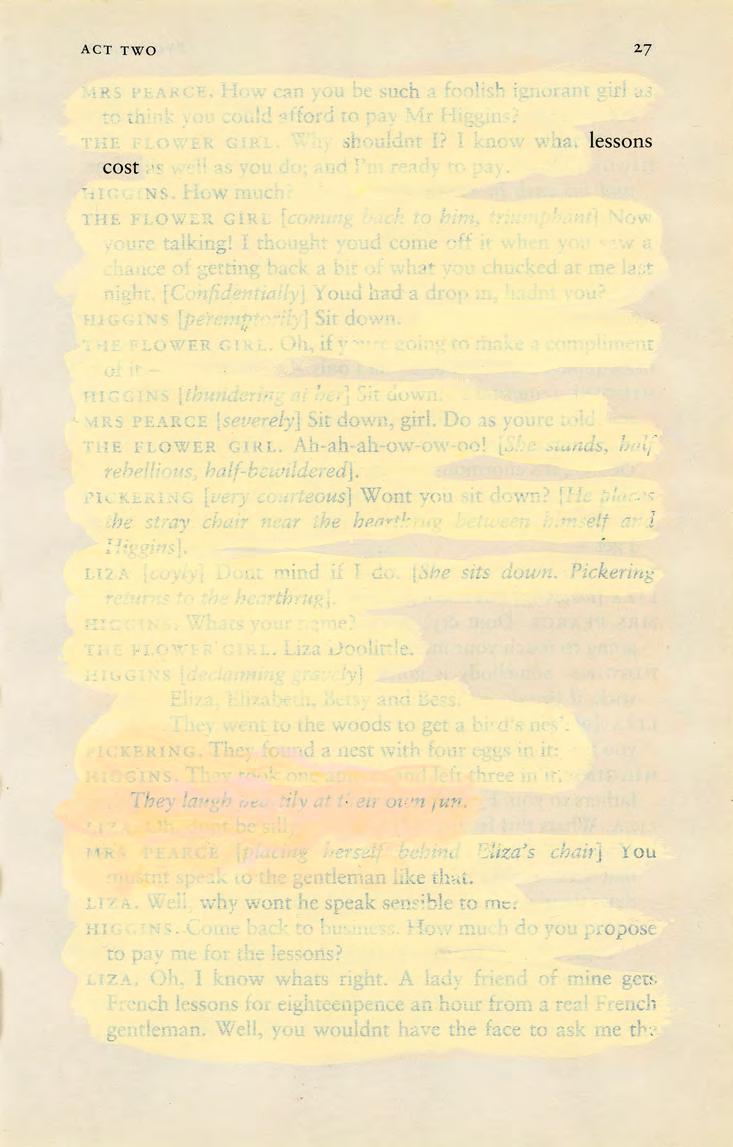 ACT TWO 27
MRS PEARCE. How can you be such a foolish ignorant girl as
to think you could afford to pay Mr Higgins?
THE FLOWER GIRL. Why shouldnt I? I know what lessons
cost as well as you do; and I'm ready to pay.
HIGGINS. How much?
THE FLOWER GIRL [coming back to him, triumphant] Now
youre talking! I thought youd come off it when you saw a
chance of getting back a bit of what you chucked at me last
night. [Confidentially] Youd had a drop in, hadnt you?
HIGGINS [peremptorily] Sit down.
THE FLOWER GIRL. Oh, if youre going to make a compliment
of it –
HIGGINS [thundering at her] Sit down.
MRS PEARCE [severely] Sit down, girl. Do as youre told.
THE FLOWER GIRL. Ah-ah-ah-ow-ow-oo! [She stands, half
rebellious, half-bewildered].
PICKERING [very courteous] Wont you sit down? [He places
the stray chair near the hearthrug between himself and
Higgins].
LIZA [coyly] Dont mind if I do. [She sits down. Pickering
returns to the hearthrug].
HIGGINS. Whats your name?
THE FLOWER GIRL. Liza Doolittle.
HIGGINS [declaiming gravely]
Eliza, Elizabeth, Betsy and Bess,
They went to the woods to get a bird's nes':
PICKERING. They found a nest with four eggs in it:
HIGGINS. They took one apiece, and left three in it.
They laugh heartily at their own fun.
LIZA. Oh, dont be silly.
MRS PEARCE [placing herself behind Eliza's chair] You
mustnt speak to the gentleman like that.
LIZA. Well, why wont he speak sensible to me?
HIGGINS. Come back to business. How much do you propose
to pay me for the lessons?
LIZA. Oh, I know whats right. A lady friend of mine gets
French lessons for eighteenpence an hour from a real French
gentleman. Well, you wouldnt have the face to ask me the